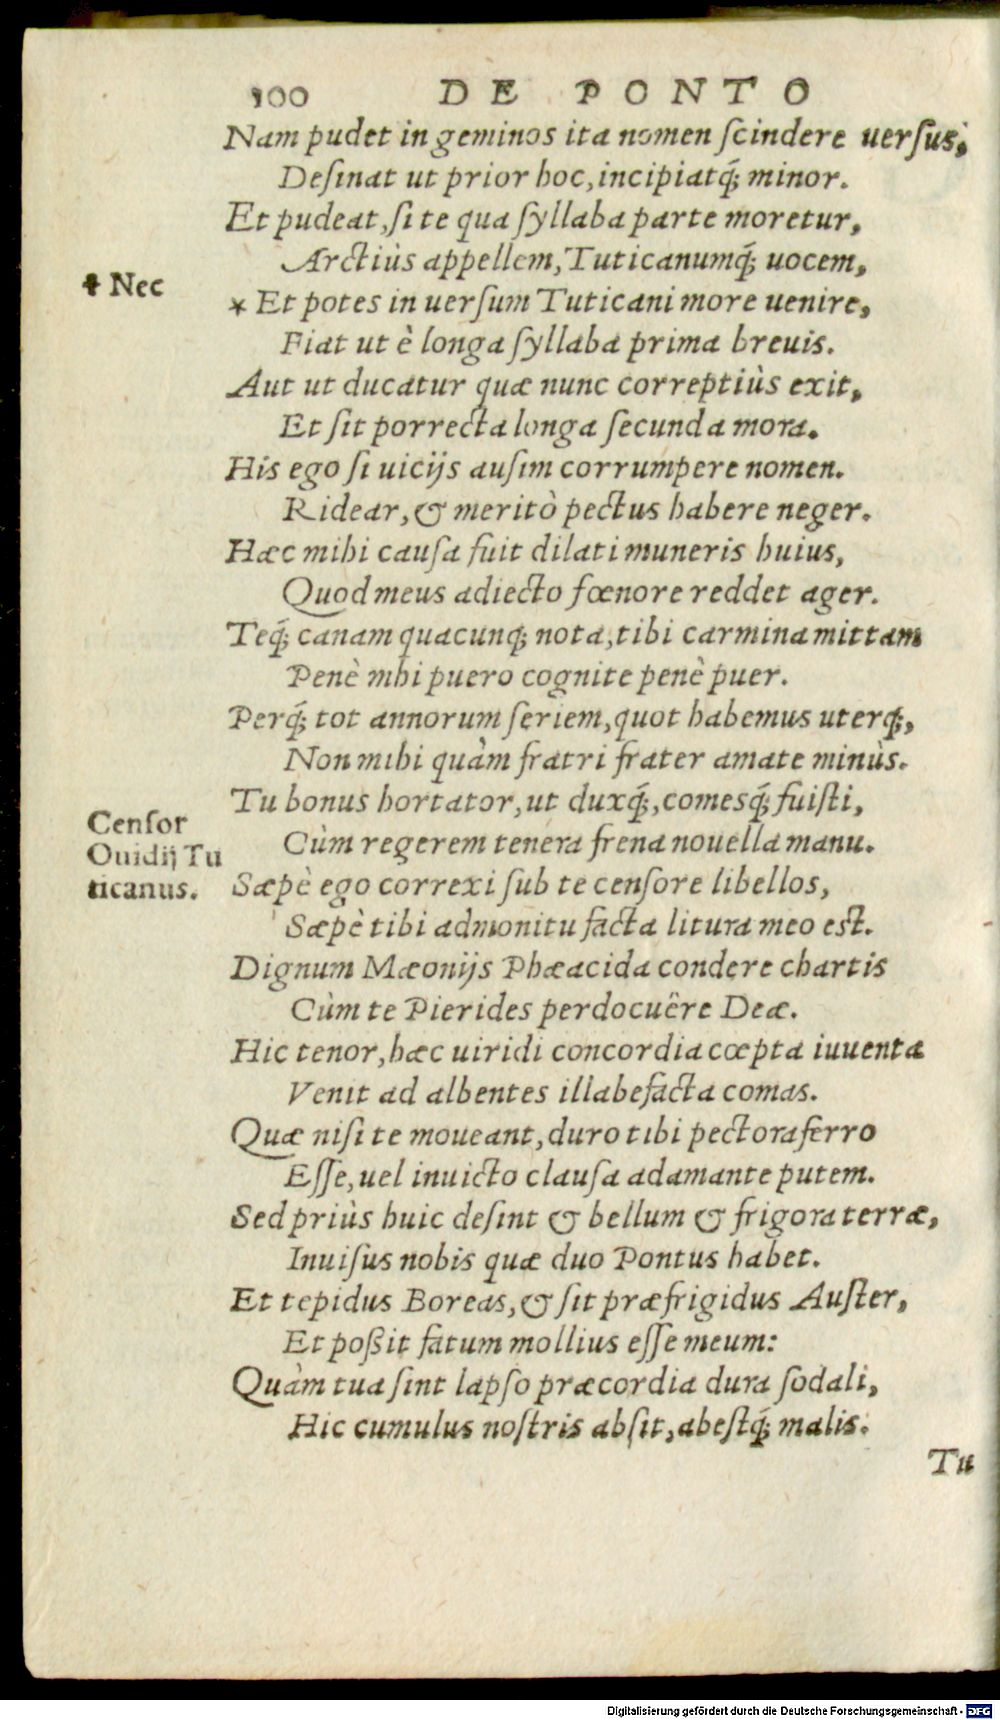 100 DE PONTO
Nam pudet in geminos ita nomen ſcindere uerſus,
Deſinat ut prior hoc, incipiatq́; minor.
Et pudeat, ſi te qua ſyllaba parte moretur,
Arctiùs appellem, Tuticanumq́; uocem,
* Nec
* Et potes in uerſum Tuticani more uenire,
Fiat ut è longa ſyllaba prima breuis.
Aut ut ducatur quæ nunc correptiùs exit,
Et ſit porrecta longa ſecunda mora.
His ego ſi uicijs auſim corrumpere nomen.
Ridear, & meritò pectus habere neger.
Hæc mihi cauſa fuit dilati muneris huius,
Quod meus adiecto fœnore reddet ager.
Teq́; canam quacunq; nota, tibi carmina mittam
Penè mhi puero cognite penè puer.
Perq́; tot annorum ſeriem, quot habemus uterq;,
Non mihi quàm fratri frater amate minùs.
Tu bonus hortator, ut duxq́;, comesq́; fuiſti,
Cùm regerem tenera frena nouella manu.
Cenſor
Ouidij Tu
ticanus.
Sæpè ego correxi ſub te cenſore libellos,
Sæpè tibi admonitu facta litura meo eſt.
Dignum Mæonijs Phæacida condere chartis
Cùm te Pierides perdocuêre Deæ.
Hic tenor, hæc uiridi concordia cœpta iuuenta
Venit ad albentes illabefacta comas.
Quæ niſi te moueant, duro tibi pectora ferro
Eſſe, uel inuicto clauſa adamante putem.
Sed priùs huic deſint & bellum & frigora terræ,
Inuiſus nobis quæ duo Pontus habet.
Et tepidus Boreas, & ſit præfrigidus Auſter,
Et poßit fatum mollius eſſe meum:
Quàm tua ſint lapſo præcordia dura ſodali,
Hic cumulus noſtris abſit, abeſtq́; malis.
Tu
Digitalisierung gefördert durch die Deutsche Forschungsgemeinschaft - DFG